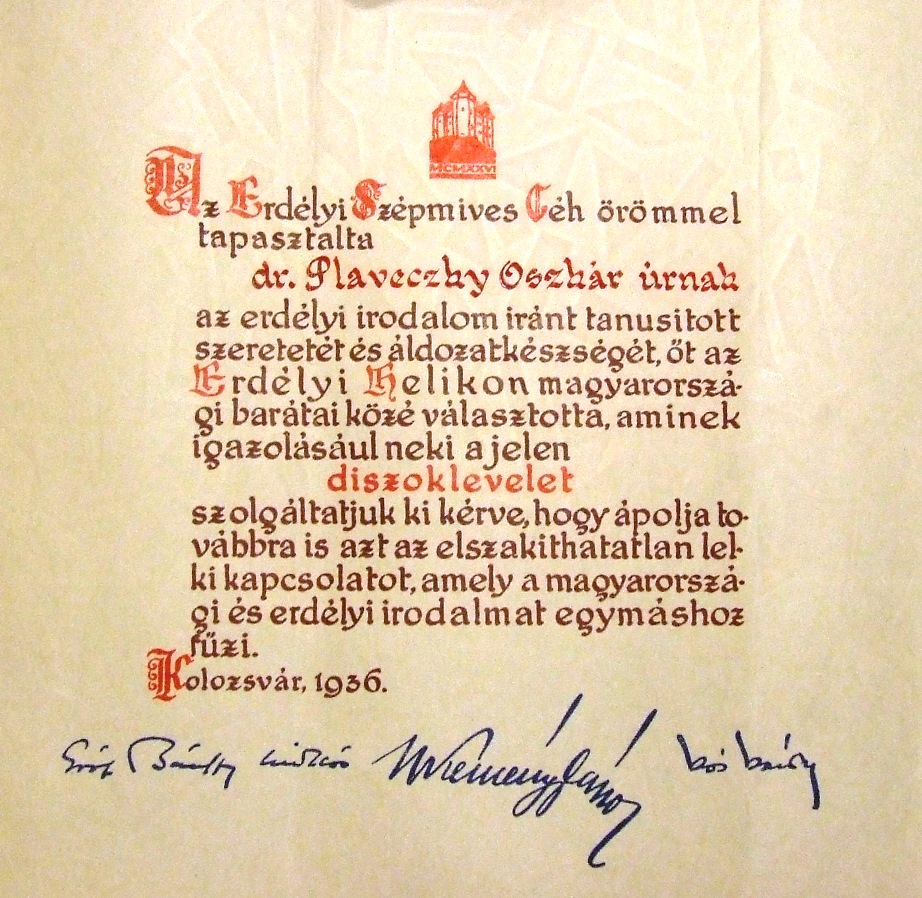 MCMXXVI
Az Erdélyi Szépmives Céh örömmel
tapasztalta
dr. Plaveczky Oszkár úrnak
az erdélyi irodalom iránt tanusitott
szeretetét és áldozatkészségét, őt az
Erdélyi Helikon magyarorszá-
gi barátai közé választotta, aminek
igazolásául neki a jelen
diszoklevelet
szolgáltatjuk ki kérve, hogy ápolja to-
vábbra is azt az elszakithatatlan lel-
ki kapcsolatot, amely a magyarorszá-
gi és erdélyi irodalmat egymáshoz
fűzi.
Kolozsvár, 1936.
Gróf Bánffy Miklós Kemény János Kós Károly